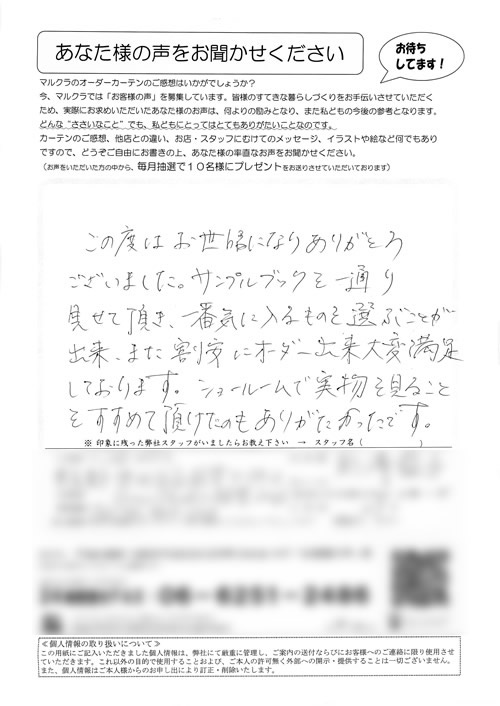 あなた様の声をお聞かせください
お待ち
してます!
マルクラのオーダーカーテンのご感想はいかがでしょうか?
今、マルクラでは「お客様の声」を募集しています。皆様のすてきな暮らしづくりをお手伝いさせていただく
ため、実際にお求めいただいたあなた様のお声は、何よりの励みとなり、また私どもの今後の参考となります。
どんな“ささいなこと”でも、私どもにとってはとてもありがたいことなのです。
カーテンのご感想、他店との違い、お店・スタッフにむけてのメッセージ、イラストや絵など何でもあり
ですので、どうぞご自由にお書きの上、あなた様の率直なお声をお聞かせください。
(お声をいただいた方の中から、毎月抽選で10名様にプレゼントをお送りさせていただいております)
この度はお世話になりありがとう
ございました。サンプルブックを一通り
見せて頂き、一番気に入るものを選ぶことが
出来、また割安にオーダー出来大変満足
しております。ショールームで実物を見ること
をすすめて頂けたのもありがたかったです。
※ 印象に残った弊社スタッフがいましたらお教え下さい → スタッフ名 ( )
06-6251-2486
≪個人情報の取り扱いについて≫
この用紙にご記入いただきました個人情報は、弊社にて厳重に管理し、ご案内の送付ならびにお客様へのご連絡に限り使用させ
ていただきます。これ以外の目的で使用することおよび、ご本人の許可無く外部への開示・提供することは一切ございません。
また、個人情報はご本人様からのお申し出により訂正・削除いたします。